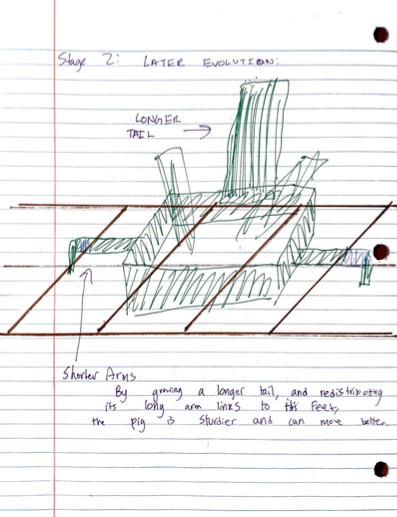 Stage 2: LATER EVOLUTION:
LONGER
TAIL
Shorter Arms
By growing a longer tail, and redistributing
its long arm links to its feet,
the pig is sturdier and can move better.